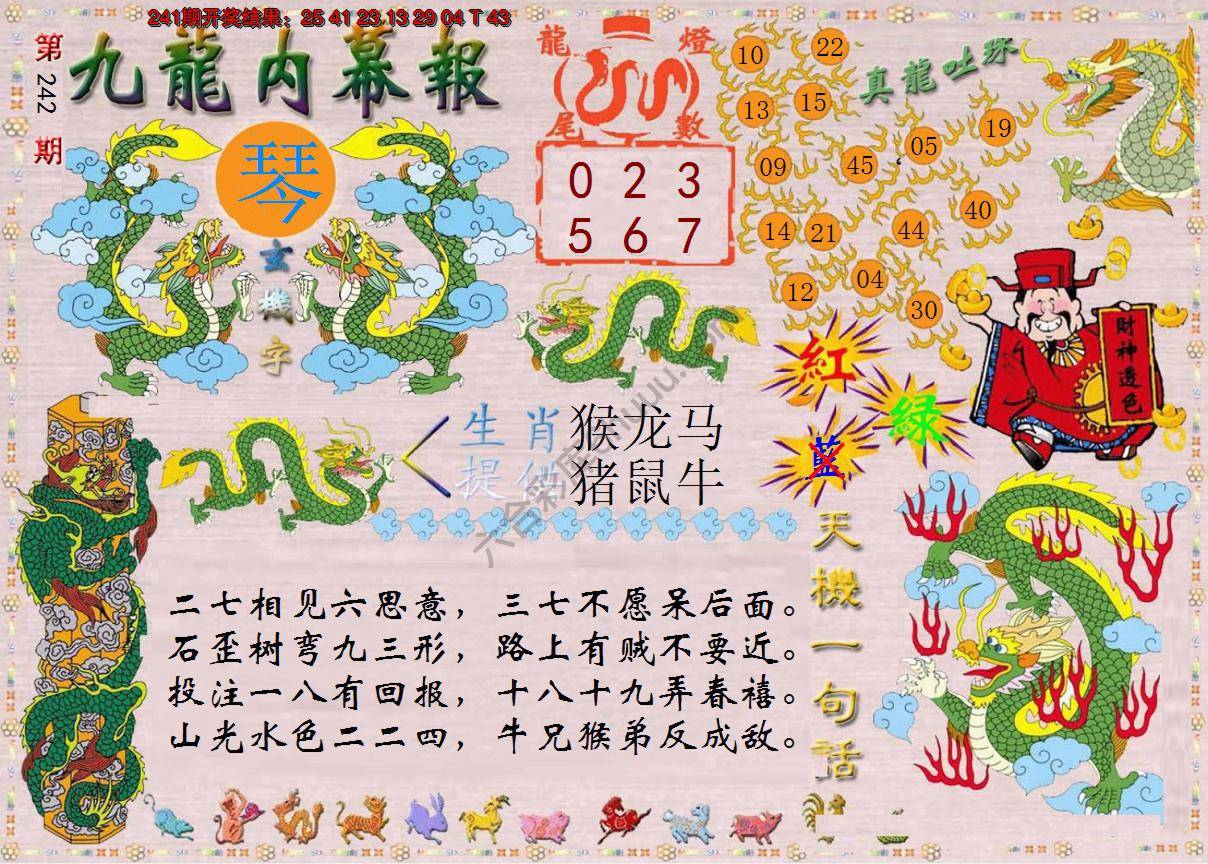 241期开奖结果：25 41 23 13 29 04 T 43
第242期
九龍内幕報
琴
玄機字
龍燈
尾數
0 2 3
5 6 7
真龍吐珠
10 22
13 15
09 45 05 19
14 21 44 40
12 04 30
財神透色
紅
綠
藍
生肖 猴龙马
提供 猪鼠牛
天機一句話
二七相见六思意，三七不愿呆后面。
石歪树弯九三形，路上有贼不要近。
投注一八有回报，十八十九弄春禧。
山光水色二二四，牛兄猴弟反成敌。